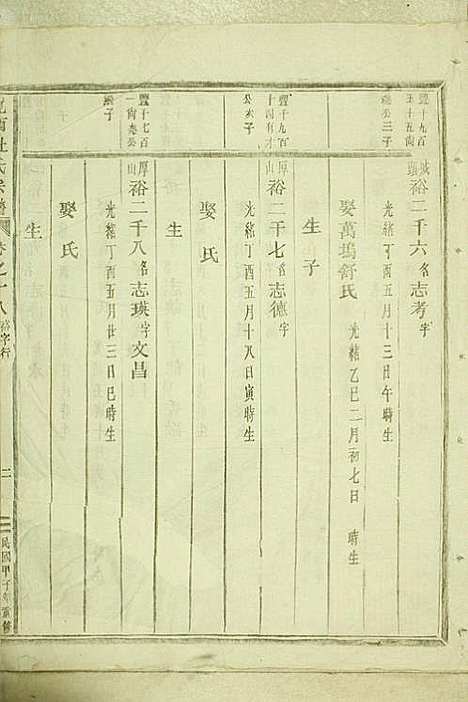 豐十九百
五十五尚
公三子
裕二千六名志考字
光緒丁酉五月十三日午時生
娶萬塢舒氏
光緒乙巳二月初七日 時生
生子
豐十九百
十四有才
公次子
厚山
裕二千七名志德字
光緒丁酉五月十八日寅時生
娶氏
生
豐十七百
一尚忠公
子
厚山
裕二千八名志瑛字文昌
光緒丁酉五月廿三日巳時生
娶氏
生
杜氏宗譜
卷之十八
裕字行
二
民國甲子年重修